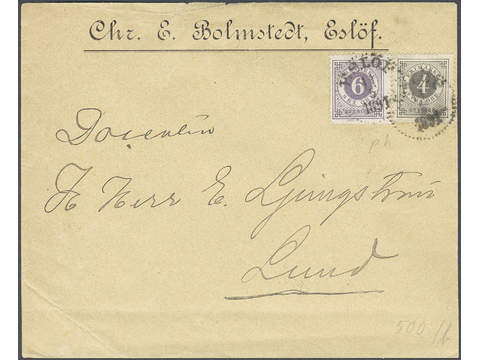 Chr. E. Bolmstedt, Eslöf.
6 4
ESLÖF
1891
Docenten
H Herr E. Ljungström
Lund
500/6